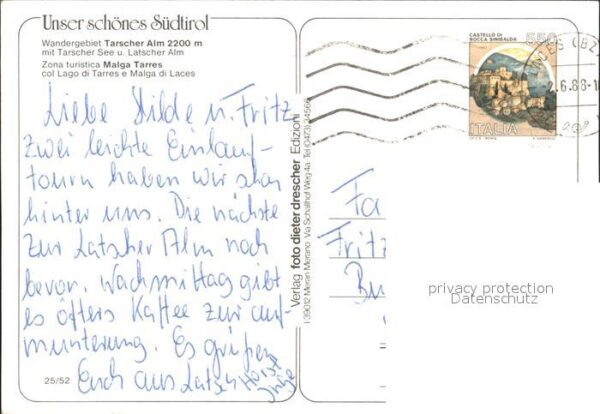 Unser schönes Südtirol
Wandergebiet Tarscher Alm 2200 m
mit Tarscher See u. Latscher Alm
Zona turistica Malga Tarres
col Lago di Tarres e Malga di Laces
Liebe Hilde u. Fritz
zwei leichte Einlauf-
touren haben wir schon
hinter uns. Die nächste
zur Latscher Alm noch
bevor. Nachmittag gibt
es öfters Kaffee zur auf-
munterung. Es grüßen
Euch aus Latsch Horst
25/52
Verlag foto dieter drescher Edizioni
I-39012 Meran Merano Via Schallhof Weg 4a
CASTELLO DI
ROCCA SINIBALDA
550
ITALIA
Fa
Fritz
privacy protection
Datenschutz